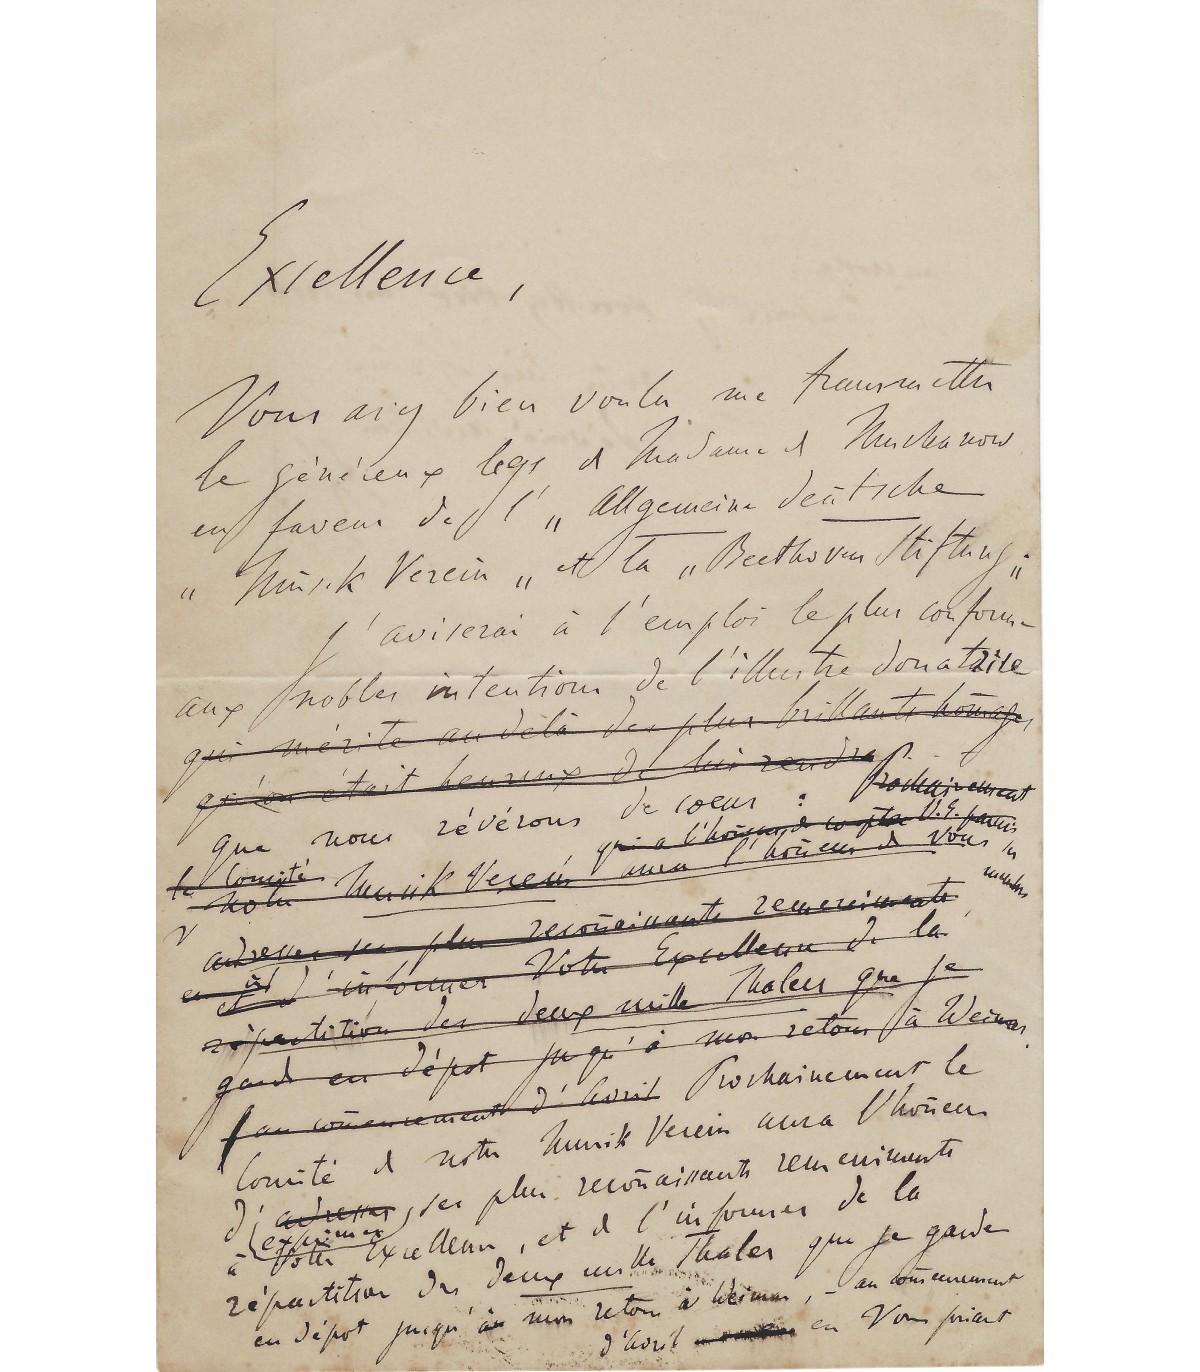 Excellence,
Vous avez bien voulu me transmettre
le généreux legs de Madame de Muchanow
en faveur de l' „Allgemeine deutsche
„Musik Verein„ et la „Beethoven Stiftung„.
J'aviserai à l'emploi le plus conforme
aux nobles intentions de l'illustre donatrice
qui mérite au delà des plus brillants hom̄ages
qu'on était heureux de lui rendre
que nous révérons de coeur : Prochainement
qui a l'hon̄eur de compter V. E. parmis ses membres
le Comité
Notre Musik Verein aura l'hon̄eur de Vous
adresser ses plus recon̄aissants remerciments
et d'informer Votre Excellence de la
répartition des deux mille Thalers que je
garde en dépôt jusqu'à mon retour à Weimar,
au com̄encement d'Avril Prochainement le
Comité de notre Musik Verein aura l'hon̄eur
d'adresser ses plus recon̄aissants remerciments
exprimer
à Votre Excellence, et de l'informer de la
répartition des deux mille Thaler que je garde
en dépôt jusqu'à mon retour à Weimar, – au com̄encement
d'Avril en Vous priant